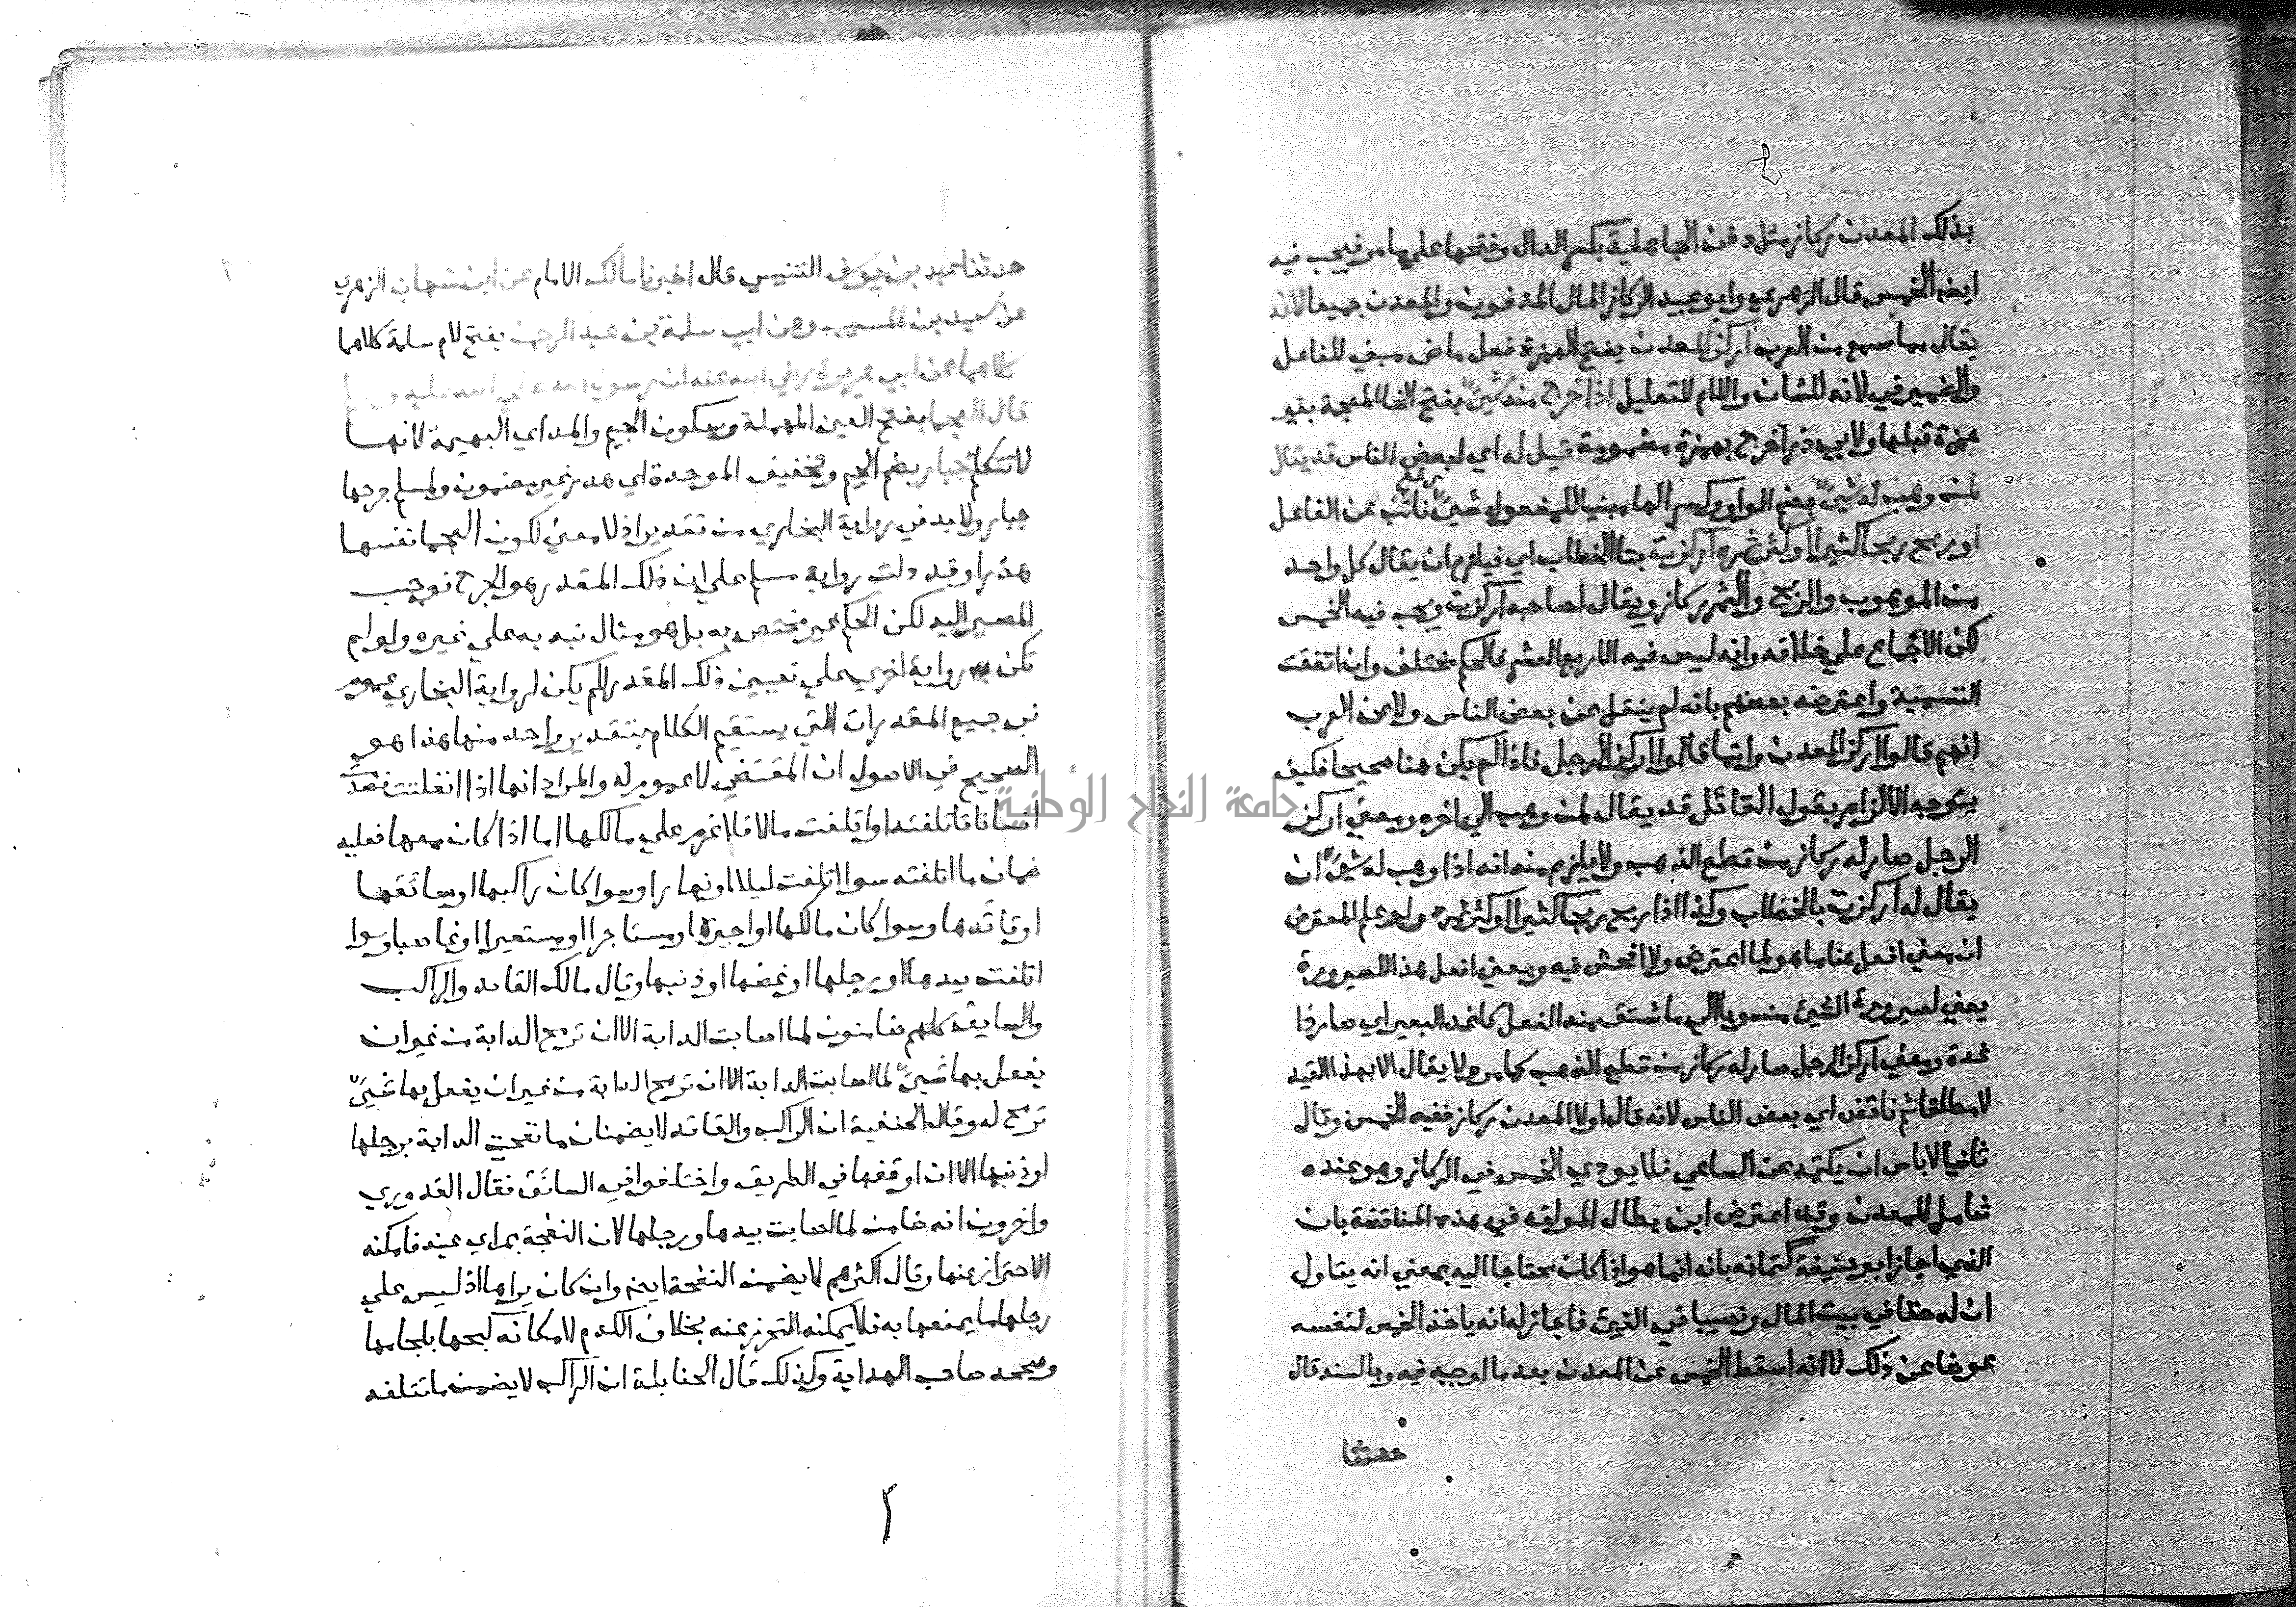 بذلك المعدن ركاز مثل دفن الجاهلية بكسر الدال وفتحها علي ما مر فيجب فيه
ايضا الخمس قال الزهري وابو عبيد الركاز المال المدفون والمعدن جميعا لانه
يقال مما سمع من العرب اركز المعدن بفتح الهمزة فعل ماض مبني للفاعل
والضمير في لانه للشان واللام للتعليل اذا خرج منه شيئ بفتح الخا المعجمة بغير
همزة قبلها ولابي ذر اخرج بهمزة مضمومة قيل له اي لبعض الناس قد يقال
لمن وهب له شيئ بضم الواو وكسر الها مبنيا للمفعول شيئ نائب عن الفاعل
او ربح ربحا كثيرا او كثر ثمره اركزت بتا الخطاب اي فيلزم ان يقال كل واحد
من الموهوب والربح والثمر ركاز ويقال لصاحبه اركزت ويجب فيه الخمس
لكن الاجماع علي خلافه وانه ليس فيه الا ربع العشر فالحكم مختلف وان اتفقت
التسمية واعترضه بعضهم بانه لم ينقل عن بعض الناس ولا عن العرب
انهم قالوا اركز المعدن وانما قالوا اركز الرجل فاذا لم يكن هنا صحيحا فكيف
يتوجه الالزام بقول القائل قد يقال لمن وهب الي اخره ومعني اركز
الرجل صار له ركاز من قطع الذهب ولا يلزم منه انه اذا وهب له شيئ ان
يقال له اركزت بالخطاب وكذا اذا ربح ربحا كثيرا او كثر ثمره ولو علم المعترض
ان معني افعل هنا ما هو لما اعترض ولا افحش فيه ومعني افعل هذا للصيرورة
يعني لصيرورة الشيئ منسوبا الي ما اشتق منه الفعل كاغد البعير اي صار ذا
غدة ومعني اركز الرجل صار له ركاز من قطع الذهب كما مر ولا يقال الا بهذا القيد
لا مطلقا ثم ناقض اي بعض الناس لانه قال اولا المعدن ركاز ففيه الخمس وقال
ثانيا لا باس ان يكتمه عن الساعي فلا يودي الخمس في الركاز وهو عنده
شامل للمعدن وقد اعترض ابن بطال المولف في هذه المناقضة بان
الذي اجاز ابو حنيفة كتمانه بانه انما هو اذا كان محتاجا اليه بمعني انه يتاول
ان له حقا في بيت المال ونصيبا في الفيئ فاجاز له انه ياخذ الخمس لنفسه
عوضا عن ذلك لا انه اسقط الخمس عن المعدن بعد ما اوجبه فيه وبالسند قال
حدثنا
حدثنا عبد بن يوسف التنيسي قال اخبرنا مالك الامام عن ابن شهاب الزهري
عن سعيد بن المسيب وعن ابي سلمة بن عبد الرحمن بفتح لام سلمة كلاهما
كلاهما عن ابي هريرة رضي الله عنه ان رسول الله صلي الله عليه وسلم
قال العجما بفتح العين المهملة وسكون الجيم والمد اي البهيمة لانها
لا تتكلم جبار بضم الجيم وتخفيف الموحدة اي هدر غير مضمون ولمسلم جرحها
جبار ولا بد في رواية البخاري من تقدير اذ لا معني لكون العجما نفسها
هدرا وقد دلت رواية مسلم علي ان ذلك المقدر هو الجرح فوجب
المصير اليه لكن الحكم غير مختص به بل هو مثال نبه به علي غيره ولو لم
تكن رواية اخري علي تعيين ذلك المقدر لم يكن لرواية البخاري عموم
في جميع المقدرات التي يستقيم الكلام بتقدير واحد منها هذا هو
الصحيح في الاصول ان المقتضي لا عموم له والمراد انها اذا انفلتت فصدمت
انسانا فاتلفته او اتلفت مالا فلا غرم علي مالكها اما اذا كان معها فعليه
ضمان ما اتلفته سوا اتلفت ليلا او نهارا وسوا كان راكبها او سائقها
او قائدها وسوا كان مالكها او اجيره او مستاجرا او مستعيرا او غاصبا وسوا
اتلفت بيدها او رجلها او عضها او ذنبها وقال مالك القائد والراكب
والسايق كلهم ضامنون لما اصابت الدابة الا ان ترمح الدابة من غير ان
يفعل بها شيئ لما اصابت الدابة الا ان ترمح الدابة من غير ان يفعل بها شيئ
ترمح له وقال الحنفية ان الراكب والقائد لا يضمنان ما نفحت الدابة برجلها
او ذنبها الا ان اوقفها في الطريق واختلفوا في السائق فقال القدوري
واخرون انه ضامن لما اصابت بيدها ورجلها لان النفحة بمراي عينه فامكنه
الاحتراز عنها وقال اكثرهم لا يضمن النفحة ايضا وان كان يراها اذ ليس علي
رجلها ما يمنعها به فلا يمكنه التحرز عنه بخلاف الكدم لامكانه كبحها بلجامها
وصححه صاحب الهداية وكذلك قال الحنابلة ان الراكب لا يضمن ما تتلفه
جامعة النجاح الوطنية